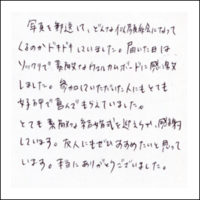 写真を郵送して、どんな似顔絵になって
くるのかドキドキしていました。届いた日は、
ソックリで素敵なウェルカムボードに感激
しました。参加していただいた人にもとても
好評で喜んでもらえていました。
とても素敵な結婚式を迎えられ、感謝
しています。友人にもぜひおすすめたいと思って
います。本当にありがとうございました。